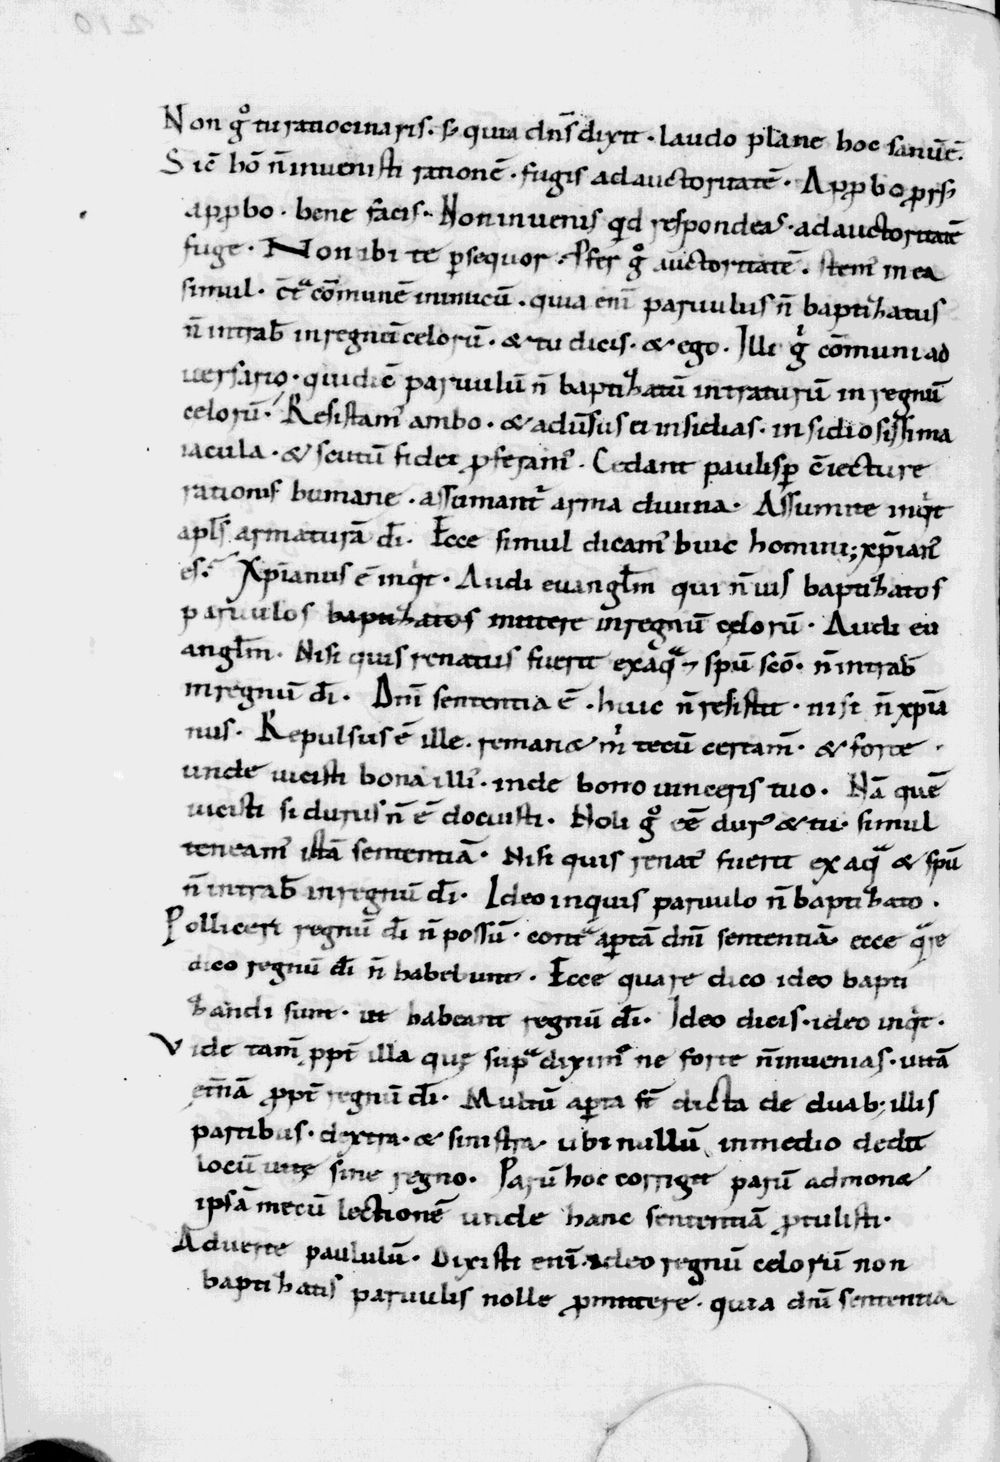 Non g̊ tu ratiocinaris · s; quia dn̄s dixit · laudo plane hoc sanū ē.
Sic̄ hō n̄ inuenisti rationē · fugis ad auctoritatē · Appbo prs;
appbo · bene facis · Non inuenis qd respondeas · ad auctoritatē
fuge · Non ibi te ꝑsequor · Pfer g̊ auctoritatē · stem' in ea
simul · c̄t^a cōmunē inimicū · quia eni paruulus n̄ baptizatus
n̄ intrab̄ in regnū celorū · & tu dicis · & ego · Illi g̊ cōmuni ad
uersario · qui dic̄ paruulū n̄ baptizatū intraturū in regnū
celorū · Resistam' ambo · & aduersus ei insidias · insidiosissima
iacula · & scutū fidei ꝓferam' · Cedant paulisꝑ c̄iecture
rationis humane · assumant^r arma diuina · Assumite inqt
apls̄ armaturā dī · Ecce simul dicam' huic homini; xp̄ian'
es · Xp̄ianus ē inqt · Audi euanglm̄ qui n̄ uis baptizatos
paruulos baptizatos mittere in regnū celorū · Audi eu
anglm̄ · Nisi quis renatus fuerit ex aq^a ⁊ spū scō · n̄ intrab̄
in regnū dī · Dn̄i sententia ē · huic n̄ resistit · nisi n̄ xp̄ia
nus · Repulsus ē ille · reman& m^i tecū certam̄ · & forte ·
unde uicisti bona illi' · inde bono uinceris tuo · Nā quē
uicisti si durus n̄ ē docuisti · Noli g̊ eē dur' & tu · simul
teneam' istā sententiā · Nisi quis renat' fuerit ex aq^a & spū
n̄ intrab̄ in regnū dī · Ideo inquis paruulo n̄ baptizato ·
Polliceri regnū dī n̄ possū · cont^a aꝑtā dn̄i sententiā · ecce q^are
dico regnū dī n̄ habebunt · Ecce quare dico ideo bapti
zandi sunt · ut habeant regnū dī · Ideo dicis · ideo inqt ·
Vide tam̄ ꝓpt̄ illa quę sup^a dixim' ne forte n̄ inuenias · uitā
et̄nā ꝓpt̄ regnū dī · Multū aꝑta st̄ dicta de duab; illis
partibus · dextra · & sinistra · ubi nullū in medio dedit
locū uitę sine regno · Parū hoc corrigit parū admon&
ipsā mecū lectionē unde hanc sententiā ꝓtulisti ·
Aduerte paululū · Dixisti eni · ideo regnū celorū non
baptizatis paruulis nolle ꝓmittere · quia dn̄i sententia